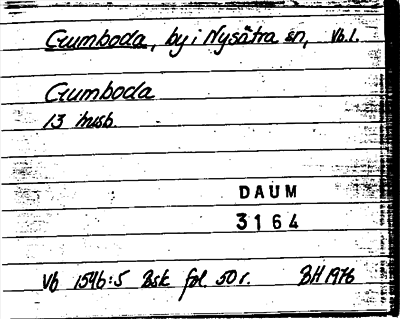 Gumboda, by i Nysätra sn, Vb.l.
Gumboda
13 msb.
DAUM
3164
Vb 1546:5 Bsk fol. 50r. BH 1976